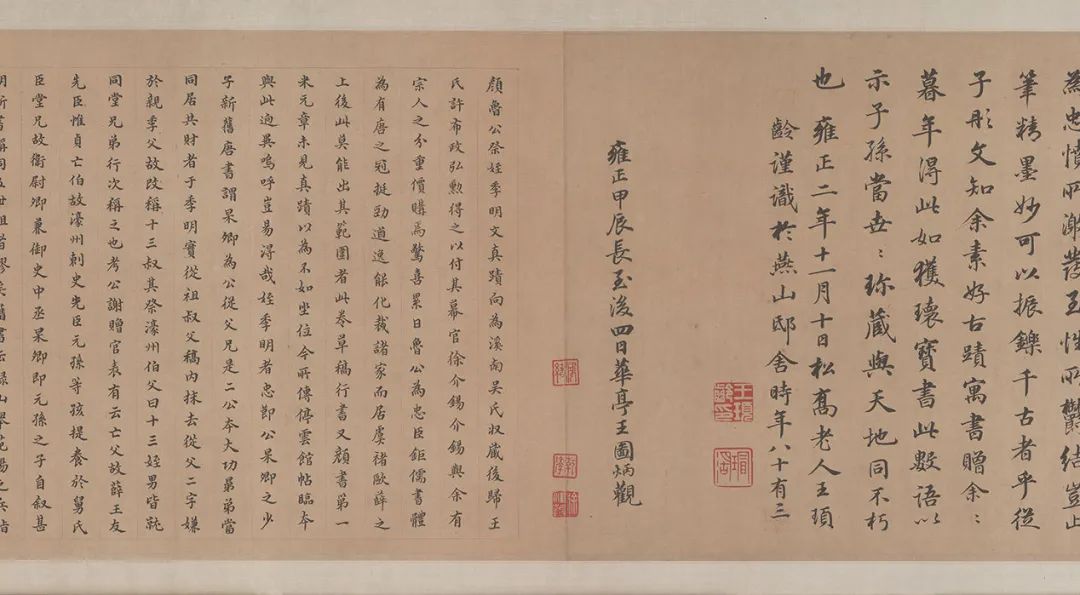 為忠憤所激發至性所鬱結豈止
筆精墨妙可以振鑠千古者乎從
子彤文知余素好古蹟寓書贈余〻
暮年得此如獲瓌寶書此數語以
示子孫當世〻珍藏與天地同不朽
也 雍正二年十一月十日松喬老人王頊
齡謹識於燕山邸舍時年八十有三
王頊齡印
雍正甲辰長至後四日華亭王圖炳觀
顏魯公祭姪季明文真蹟向為溪南吳氏收藏後歸王
氏許布政弘勳得之以付其幕官徐介錫介錫與余有
宗人之分重價購焉驚喜累日魯公為忠臣鉅儒書體
為有唐之冠挺勁遒逸能化裁諸家而居虞褚歐薛之
上後此莫能出其範圍者此卷草稿行書又顏書第一
米元章未見真蹟以為不如坐位今所傳停雲館帖臨本
與此迥異嗚呼豈易得哉姪季明者忠節公杲卿之少
子新舊唐書謂杲卿為公從父兄是二公本大功昆弟當
同居共財者于季明實從祖叔父稿內抹去從父二字嫌
於親季父故改稱十三叔其祭濠州伯父曰十三姪男皆就
同堂兄弟行次稱之也考公謝贈官表有云亡父故薛王友
先臣惟貞亡伯故濠州刺史先臣元孫等孩提養於舅氏
臣堂兄故衛尉卿兼御史中丞杲卿即元孫之子自叙甚